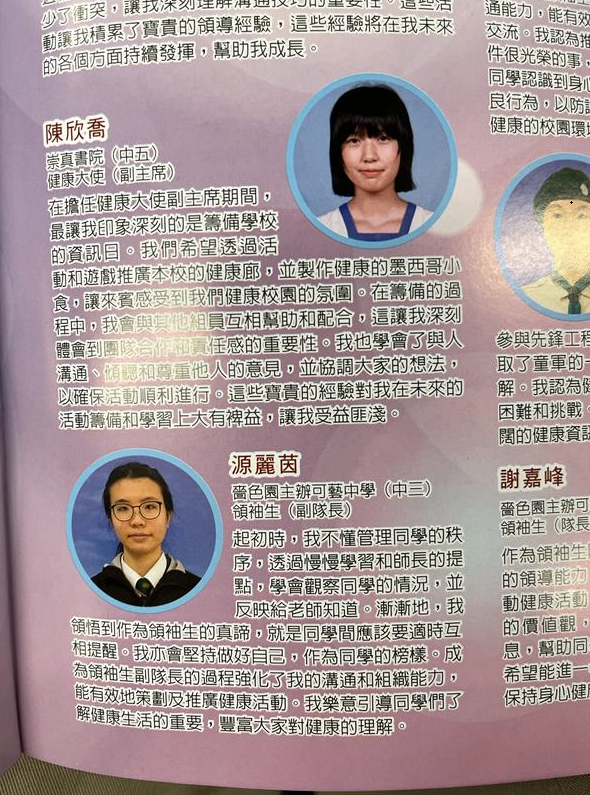 少了衝突，讓我深刻理解溝通技巧的重要性。這些活
動讓我積累了寶貴的領導經驗，這些經驗將在我未來
的各個方面持續發揮，幫助我成長。
陳欣喬
崇真書院（中五）
健康大使（副主席）
在擔任健康大使副主席期間，
最讓我印象深刻的是籌備學校
的資訊日。我們希望透過活
動和遊戲推廣本校的健康廊，並製作健康的墨西哥小
食，讓來賓感受到我們健康校園的氛圍。在籌備的過
程中，我會與其他組員互相幫助和配合，這讓我深刻
體會到團隊合作和責任感的重要性。我也學會了與人
溝通、傾聽和尊重他人的意見，並協調大家的想法，
以確保活動順利進行。這些寶貴的經驗對我在未來的
活動籌備和學習上大有裨益，讓我受益匪淺。
源麗茵
嗇色園主辦可藝中學（中三）
領袖生（副隊長）
起初時，我不懂管理同學的秩
序，透過慢慢學習和師長的提
點，學會觀察同學的情況，並
反映給老師知道。漸漸地，我
領悟到作為領袖生的真諦，就是同學間應該要適時互
相提醒。我亦會堅持做好自己，作為同學的榜樣。成
為領袖生副隊長的過程強化了我的溝通和組織能力，
能有效地策劃及推廣健康活動。我樂意引導同學們了
解健康生活的重要，豐富大家對健康的理解。
通能力，能有效
交流。我認為推
件很光榮的事，
同學認識到身心
良行為，以防誤
健康的校園環境
參與先鋒工程
取了童軍的一
解。我認為健
困難和挑戰。
闊的健康資訊
謝嘉峰
嗇色園主辦可
領袖生（隊長
作為領袖生
的領導能力
動健康活動
的價值觀，
息，幫助同
希望能進一
保持身心健